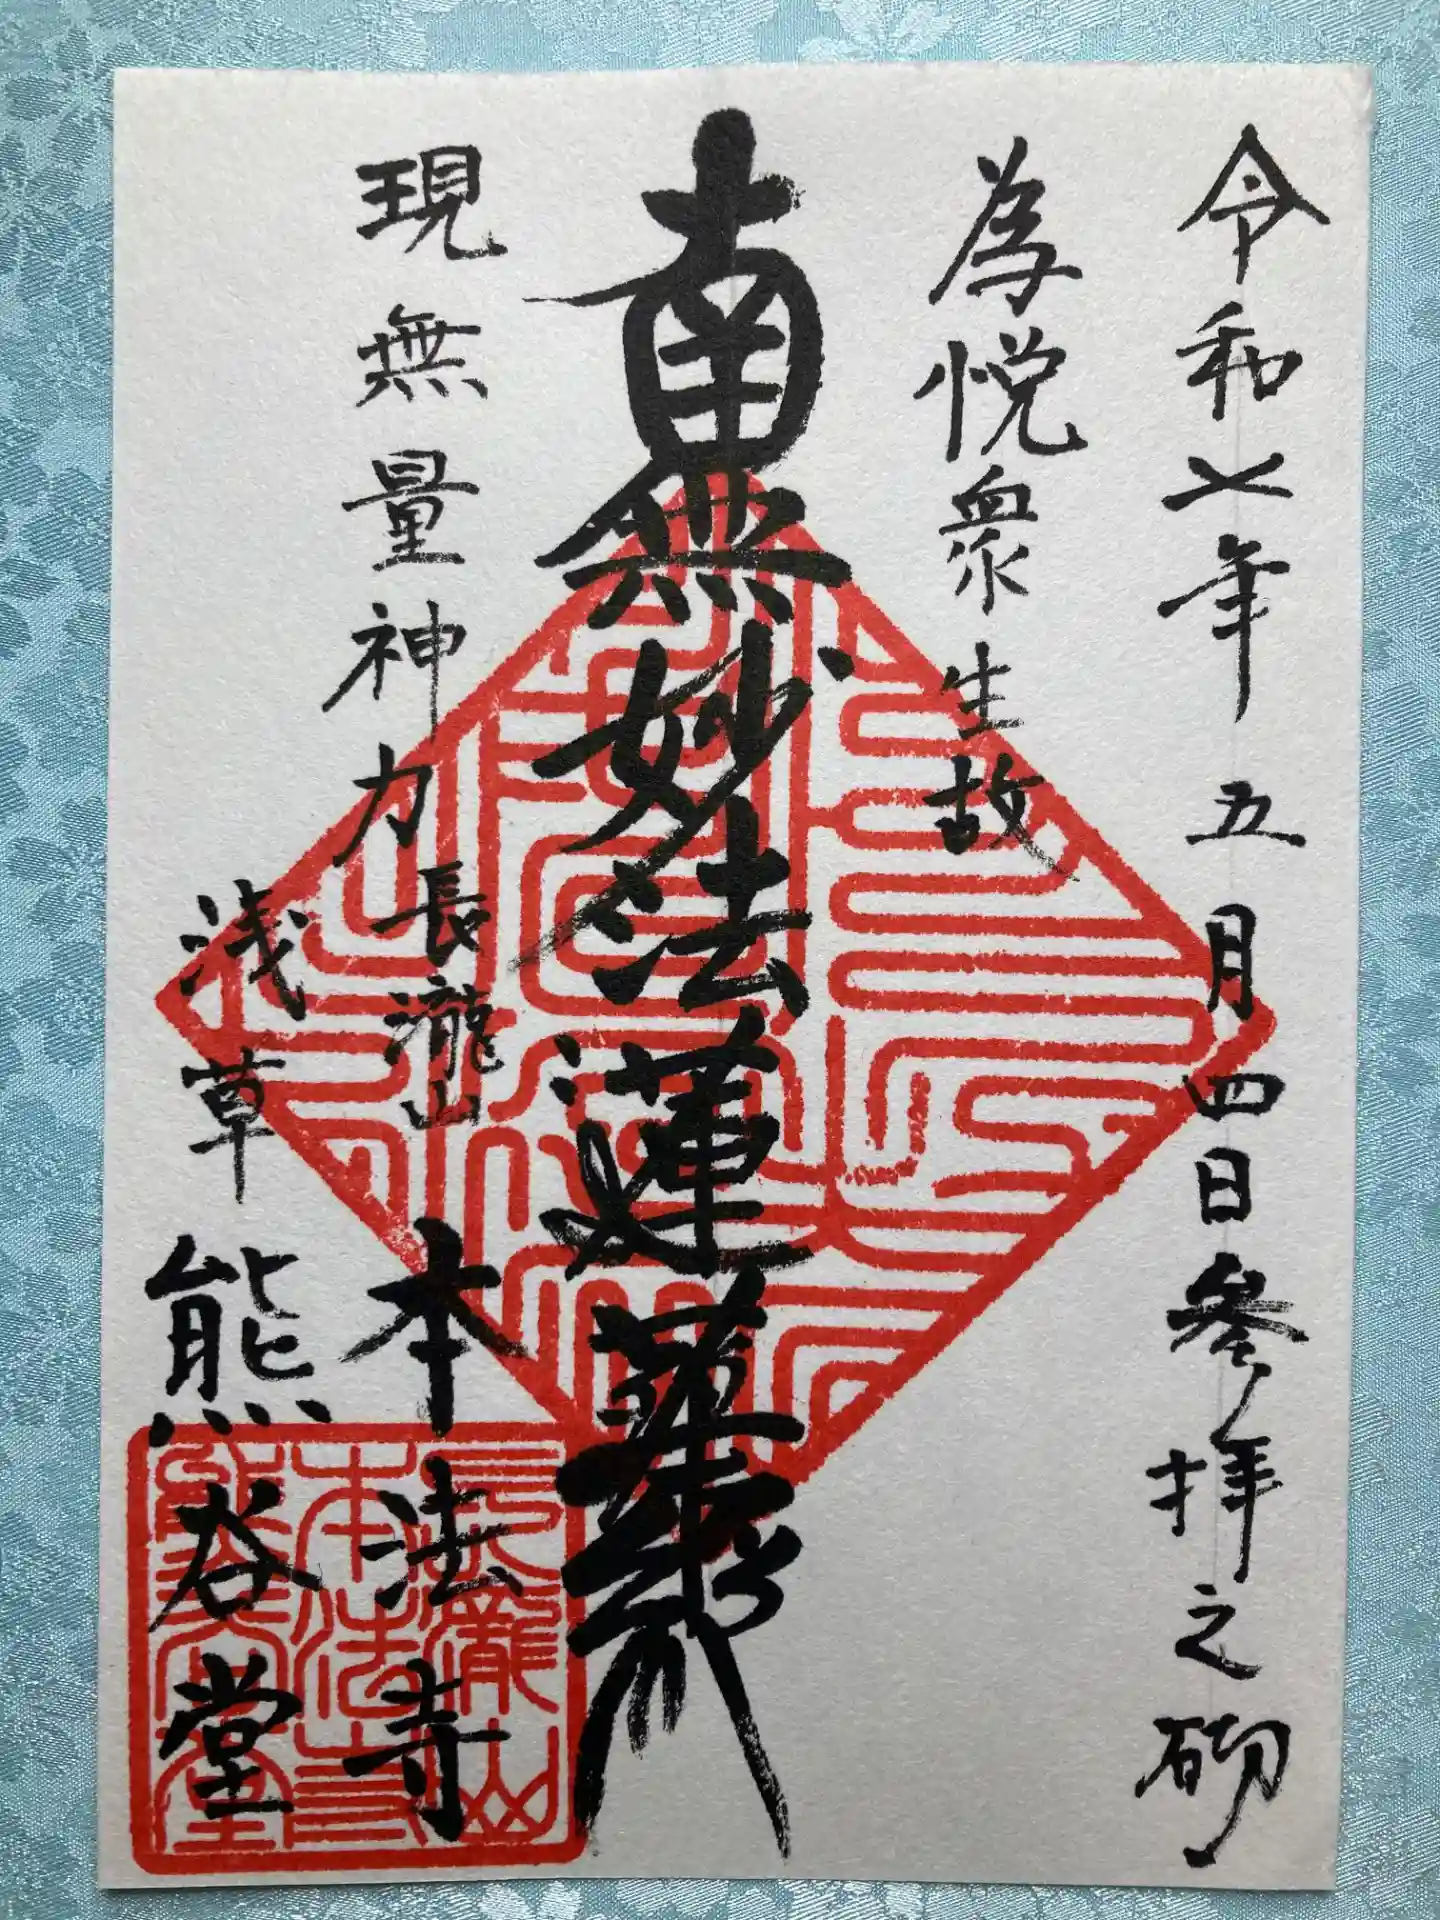 令和七年五月四日參拝之砌
為悦衆生故
南無妙法蓮華経
現無量神力
長瀧山
本法寺
浅草
熊谷堂
長瀧山
本法寺
熊谷堂